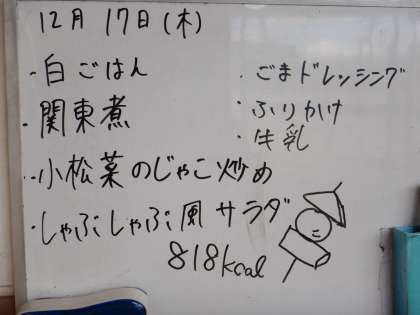 12月 17日(木)
・白ごはん
・関東煮
・小松菜のじゃこ炒め
・しゃぶしゃぶ風サラダ
・ごまドレッシング
・ふりかけ
・牛乳
818kcal